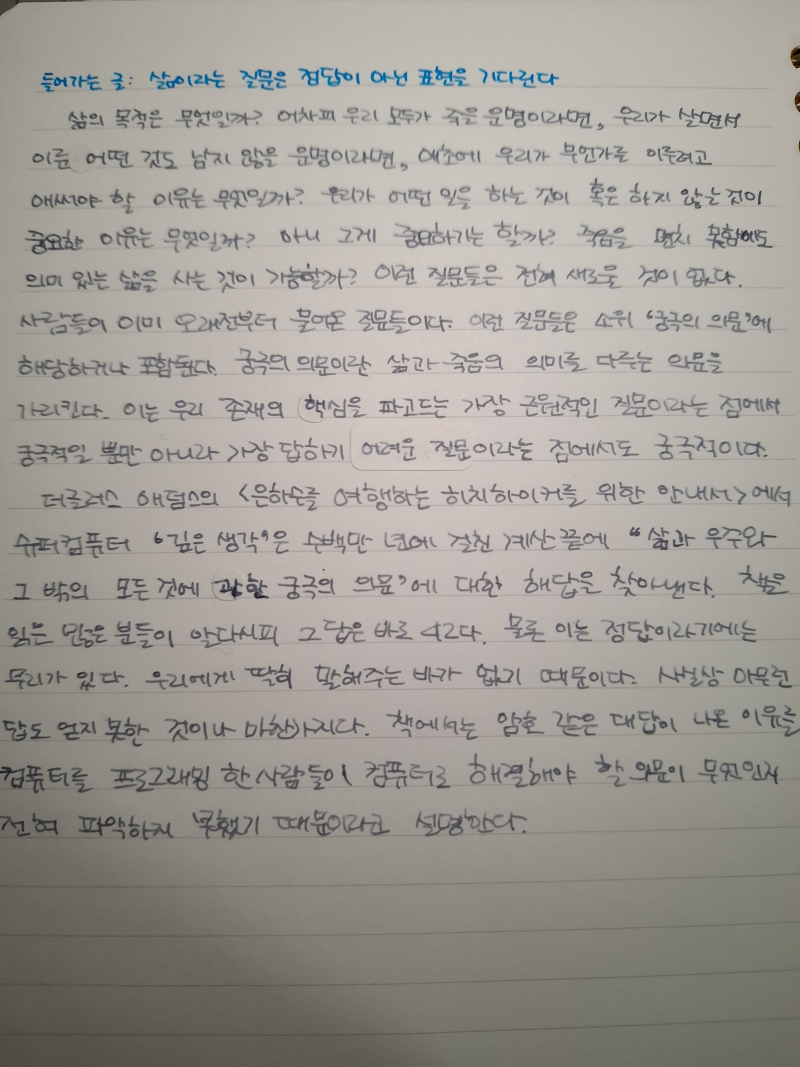 들어가는 글: 삶이라는 질문은 정답이 아닌 표현을 기다린다
삶의 목적은 무엇일까? 어차피 우리 모두가 죽을 운명이라면, 우리가 살면서
이룬 어떤 것도 남지 않을 운명이라면, 애초에 우리가 무언가를 이루려고
애써야 할 이유는 무엇일까? 우리가 어떤 일을 하는 것이 혹은 하지 않는 것이
중요한 이유는 무엇일까? 아니 그게 중요하기는 할까? 죽음을 면치 못함에도
의미 있는 삶을 사는 것이 가능할까? 이런 질문들은 전혀 새로울 것이 없다.
사람들이 이미 오래전부터 물어온 질문들이다. 이런 질문들은 소위 '궁극의 의문'에
해당하거나 포함된다. 궁극의 의문이란 삶과 죽음의 의미를 다루는 의문을
가리킨다. 이는 우리 존재의 핵심을 파고드는 가장 근원적인 질문이라는 점에서
궁극적일 뿐만 아니라 가장 답하기 어려운 질문이라는 점에서도 궁극적이다.
더글러스 애덤스의 <은하수를 여행하는 히치하이커를 위한 안내서>에서
슈퍼컴퓨터 '깊은 생각'은 수백만 년에 걸친 계산 끝에 "삶과 우주와
그 밖의 모든 것에 관한 궁극의 의문'에 대한 해답을 찾아낸다. 책을
읽은 많은 분들이 알다시피 그 답은 바로 42다. 물론 이는 정답이라기에는
무리가 있다. 우리에게 딱히 말해주는 바가 없기 때문이다. 사실상 아무런
답도 얻지 못한 것이나 마찬가지다. 책에서는 암호 같은 대답이 나온 이유를
컴퓨터를 프로그래밍 한 사람들이 컴퓨터로 해결해야 할 의문이 무엇인지
전혀 파악하지 못했기 때문이라고 설명한다.